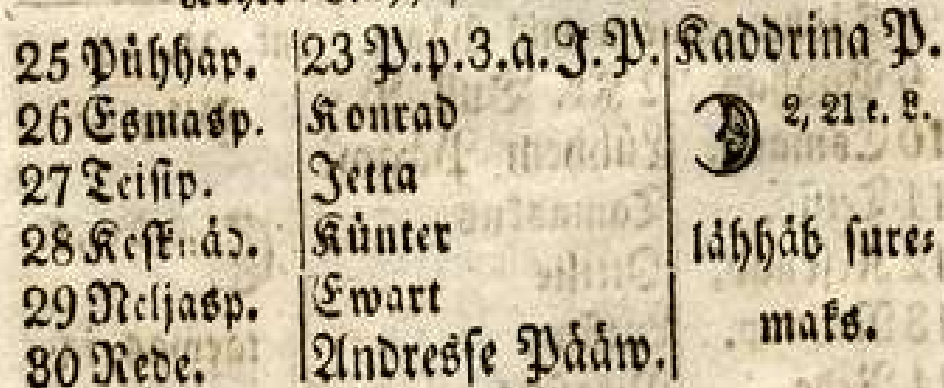 25 Pühhap. 23 P.p.3.a.J.P. Kaddrina P.
26 Esmasp. Konrad 2, 21 e. L.
27 Teisip. Jetta
28 Kesknäd. Künter lähhäb sure⸗
29 Neljasp. Ewart maks.
30 Rede. Andresse Pääw.